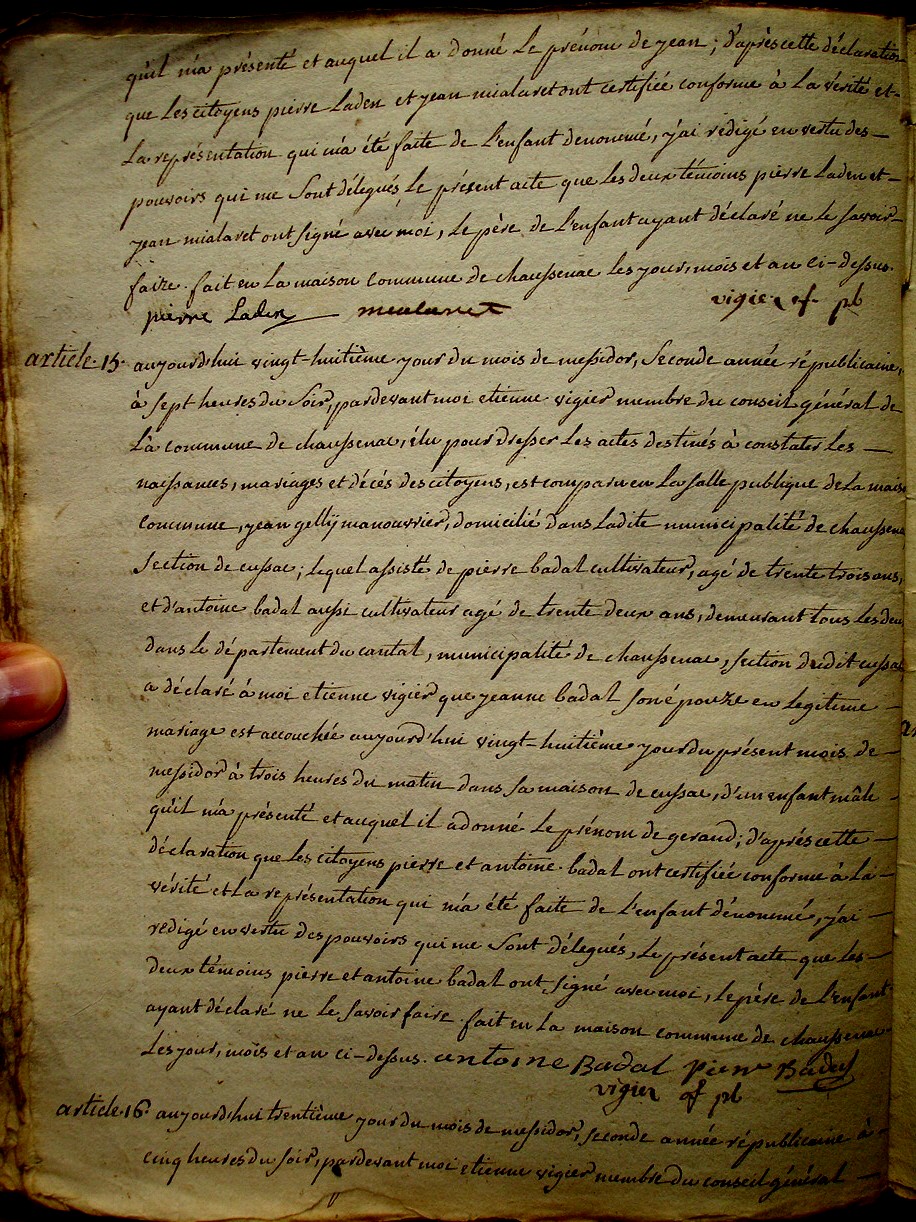 qu'il m'a présenté et auquel il a donné le prénom de jean ; d'après cette déclaration
que les citoyens pierre Laden et jean mialaret ont certifiée conforme à la vérité et -
la représentation qui m'a été faite de l'enfant denommé, j'ai rédigé en vertu des -
pouvoirs qui me sont délegués le présent acte que les deux témoins pierre laden et -
jean mialaret ont signé avec moi, le père de l'enfant ayant déclaré ne le savoir
faire. fait en la maison commune de chaussenac les jour, mois et an ci-dessus.
pierre Laden vigier of. pb
article. 15. aujourd'hui vingt-huitième jour du mois de messidor, seconde année républicaine,
à sept heures du soir, pardevant moi etienne vigier membre du conseil général de
la commune de chaussenac, élu pour dresser les actes destinés à constater les -
naissances, mariages et décés des citoyens, est comparu en la salle publique de la mais
commune, jean gelly manouvrier, domicilié dans ladite municipalité de chaussena
section de cussac ; lequel assisté de pierre badal cultivateur, agé de trente trois ans,
et d'antoine badal aussi cultivateur agé de trente deux ans, demeurant tous les deu
dans le département du cantal, municipalité de chaussenac, section dudit cussac
a déclaré à moi etienne vigier que jeanne badal son épouze en legitime -
mariage est accouchée aujourd'hui vingt-huitième jour du présent mois de -
messidor à trois heures du matin dans sa maison de cussac, d'un enfant mâle -
qu'il m'a présenté et auquel il a donné le prénom de geraud ; d'après cette -
déclaration que les citoyens pierre et antoine badal ont certifiée conforme à la -
vérité et la représentation qui m'a été faite de l'enfant dénommé, j'ai -
redigé en vertu des pouvoirs qui me sont délegués, le présent acte que les -
deux témoins pierre et antoine badal ont signé avec moi, le père de l'enfant
ayant déclaré ne le savoir faire. fait en la maison commune de chaussenac
les jour, mois et an ci-dessus. antoine Badal pierre Badal
vigier of pb
article. 16. aujourd'hui trentième jour du mois de messidor, seconde année républicaine à -
cinq heures du soir, pardevant moi etienne vigier membre du conseil général -